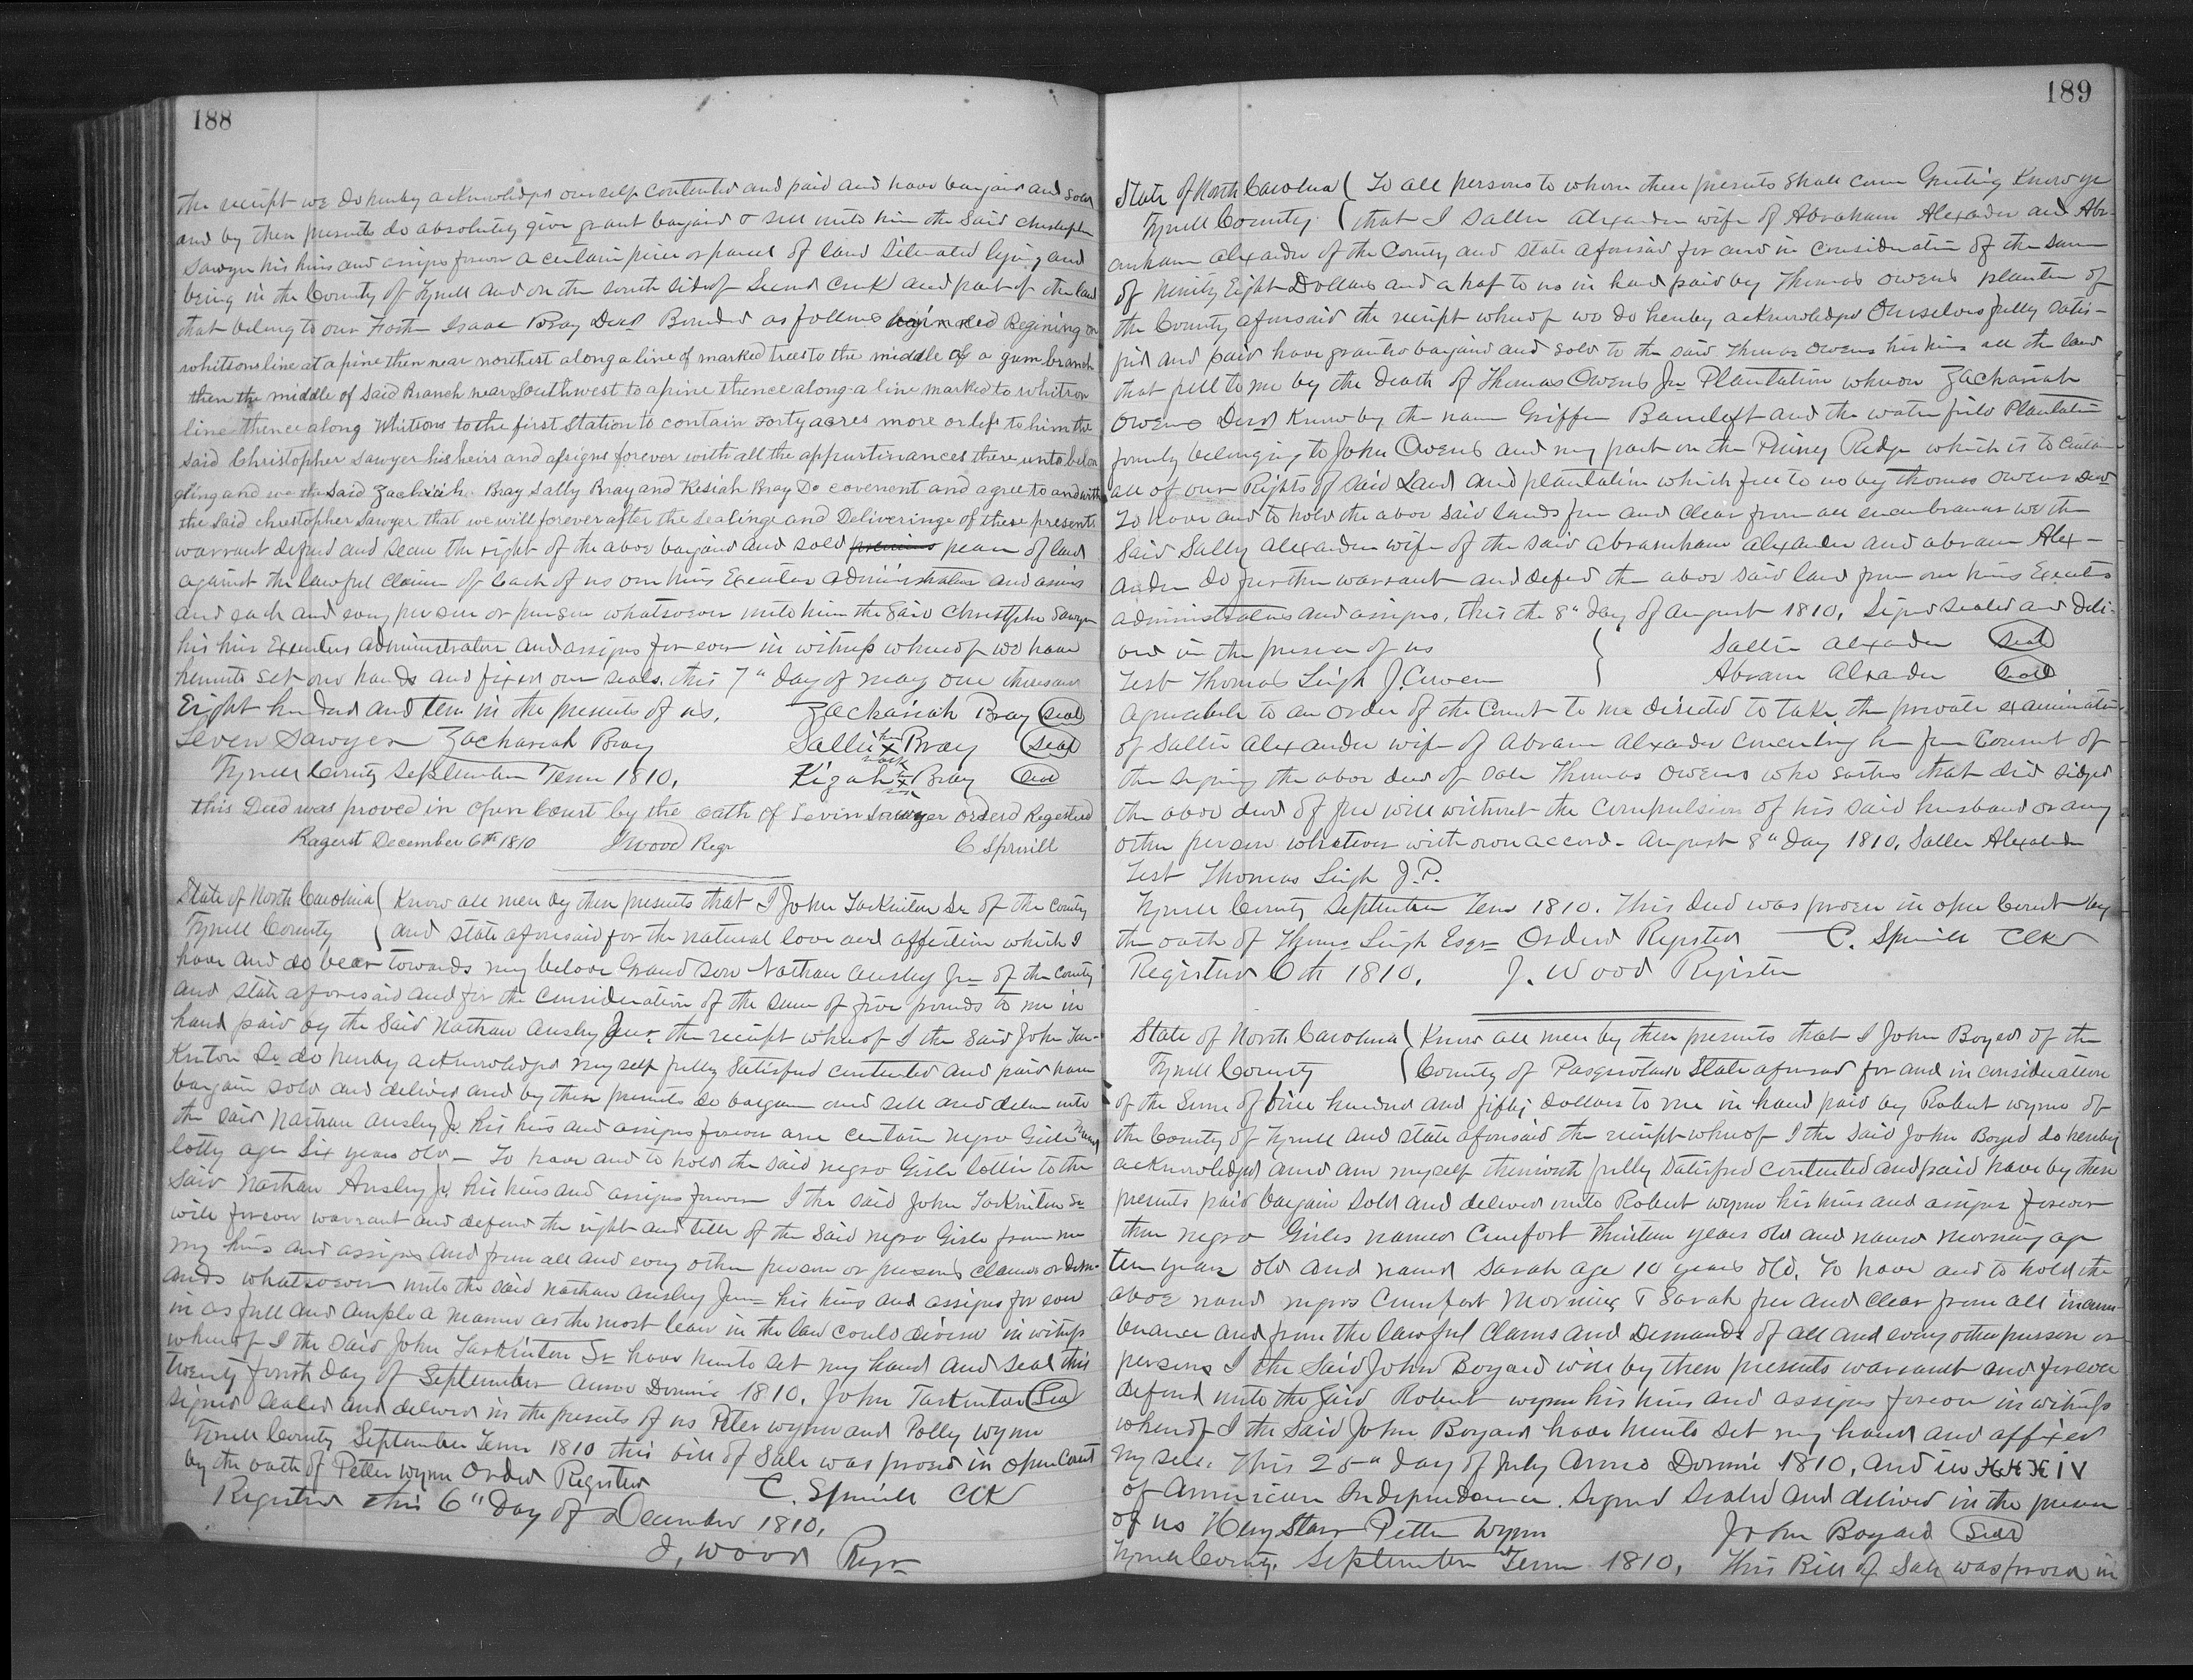 188
the receipt we do hereby acknowledged ourself contented and paid and have bargaind and sold
and by these presents do absolutely give grant bargaind & sell unto him the Said Christopher
Sawyer his heirs and assigns forever a certain piece or parcel of land Situated lying and
being in the County of Tyrrell and on the south side of Second Creek and part of the land
that belong to our Father Isaac Bray Decd Bounded as follows Begining on
whitsons line at a pine then near northest along a line of marked trees to the middle of a gum branch
then the middle of said Branch near Southwest to a pine thence along a line marked to whitson
line thence along Whitsons to the first Station to contain Forty acres more or less to him the
said Christopher Sawyer his heirs and assigns forever with all the appurtinances there unto belon
ging and we the said Zachriah Bray Sally Bray and Kesiah Bray Do covenent and agree to and with
the said Christopher Sawyer that we will forever after the Sealinge and Deliveringe of these presents
warrant defend and secure the right of the above bargaind and sold peace of land
against the lawful claim of Each of us our heirs Executor administrator and asins
and each and every person or person whatsoever unto him the Said Christopher Sawyer
his heirs Executors administrator and assigns for ever in witness whereof we have
hereunto set our hands and fixed our seals. this 7" day of may one thousand
Eight hundred and ten in the presents of us. Zachariah Bray Seal
Leven Sawyer Zachariah Bray Sallie her x mark Bray Seal
Tyrrell County September Term 1810. Kizah x Bray Seal
this Deed was proved in open Court by the oath of Levin Sawyer orderd Regesterd
Ragerst December 6th 1810 J Wood Regr C Spruill
State of North Carolina ( Know all men by these presents that I John Tarkinton Sr of the County
Tyrrell County ( and state aforesaid for the natural love and affection which I
have and do bear towards my belove Grand son Nathan Ansley Jr of the County
and state aforesaid and for the consideration of the sum of five pounds to me in
hand paid by the Said Nathan Ansley Junr. the receipt whereof I the Said John Tar-
kinton Sr do hereby acknowledged my self fully Satisfied contented and paid have
bargain sold and delived and by these presents do bargain and sell and deliver unto
the said Nathan Ansley Jr his heirs and assigns forever one certain negro Girle Named
lotty age Six years old – To have and to hold the said negro Girle lottie to the
Said Nathan Ansley Jr, his heirs and assigns forever I the said John Tarkinton Sr
will forever warrant and defend the right and title of the Said negro Girle from me
my heirs and assigns and from all and every other person or persons claimes or Dem-
ands whatsoever unto the said Nathan Ansley Junr his heirs and assigns for ever
in as full and ample a manner as the most learn in the law could divise in witness
whereof I the said John Tarkinton Sr have hereunto set my hand and seal this
twenty forth day of September annoo Domini 1810. John Tarkinton Seal
signed Sealed and deliverd in the presents of us Peter Wynn and Polly Wynn
Tyrrell County September Term 1810 this bill of Sale was proved in open Court
by the oath of Petter Wynn Orderd Registered C. Spruill Clk
Registered this 6" Day of December 1810.
J. Wood Regr
189
State of North Carolina ( To all persons to whom these presents Shall come Greeting Know ye
Tyrrell County. ( that I Sallie Alexander wife of Abraham Alexander and Abr-
anham Alexander of the County and state aforesaid for and in consideration of the sum
of Ninity Eight Dollars and a haf to us in hand paid by Thomas Owens planter of
the County aforesaid the receipt whereof we do hereby acknowledged Ourselves fully satis-
fid and paid have granted bargaind and sold to the said Thomas Owens his heirs all the land
that fell to me by the death of Thomas Owens Jr Plantation whereon Zachariah
Owens Decd Know by the name Griffin and the water field Plantation
formerly belonging to John Owens and my part on the Piney Ridge which is to contain
all of our Rights of said Land and plantation which fell to us by thomas Owens Decd
To have and to hold the above said lands free and clear from all encumbrances we the
Said Sally Alexander wife of the said Abraranham Alexander and Abram Alex-
ander do further warrant and defend the above said land from our heirs Executors
administrators and assigns, this the 8" day of August 1810. Signd Sealed and deli-
ved in the presence of us Sallie Alexander Seal
Test Thomas Leigh Abram Alexander Seal
Agreeabele to an order of the Court to me directed to take the private examination
of Sallie Alexander wife of Abram Alexander concerning her free Consent of
the signing the above deed of Sale Thomas Owens who saiths that did signed
the above deed of free will without the compulsion of his said husband or any
other person whatever with own accord. August 8" Day 1810. Sallie Alexander
Test Thomas Leigh J.P.
Tyrrell County September Term 1810. This deed was proven in open Court by
the oath of Thomas Leigh Esqr Orderd Registered C. Spruill Clk
Registered 6th 1810. J. Wood Register
State of North Carolina ( Know all men by these presents that I John Boyed of the
Tyrrell County ( County of Pasquotank State aforesaid for and in consideration
of the Sum of five hundred and fifty Dollars to me in hand paid by Robert Wynn of
the County of Tyrrell and state aforesaid the receipt whereof I the said John Boyed do hereby
acknowledged and am myself therewith fully Satisfied contented and paid have by these
presents paid bargain sold and deliverd unto Robert Wynn his heirs and assigns forever
three negro Girles named Cumfort thirteen years old and named Morning age
ten years old and named Sarah age 10 years old. To have and to hold the
above named negros Cumfort Morning & Sarah free and clear from all incum-
brance and from the lawful Claims and Demands of all and every other person or
persons I the Said John Boyard will by these presents warrant and forever
defend unto the said Robert Wynn his heirs and assigns forever in witness
whereof I the Said John Boyard have hereunto set my hand and affixed
my sele. This 25" day of July Anno Domini 1810. and in XXXIV
of American Independence. Signed Sealed and delived in the presen
of us Heny Starr Petter Wynn John Boyard Seal
Tyrrell County. September Term 1810. This Bill of Sale was proved in